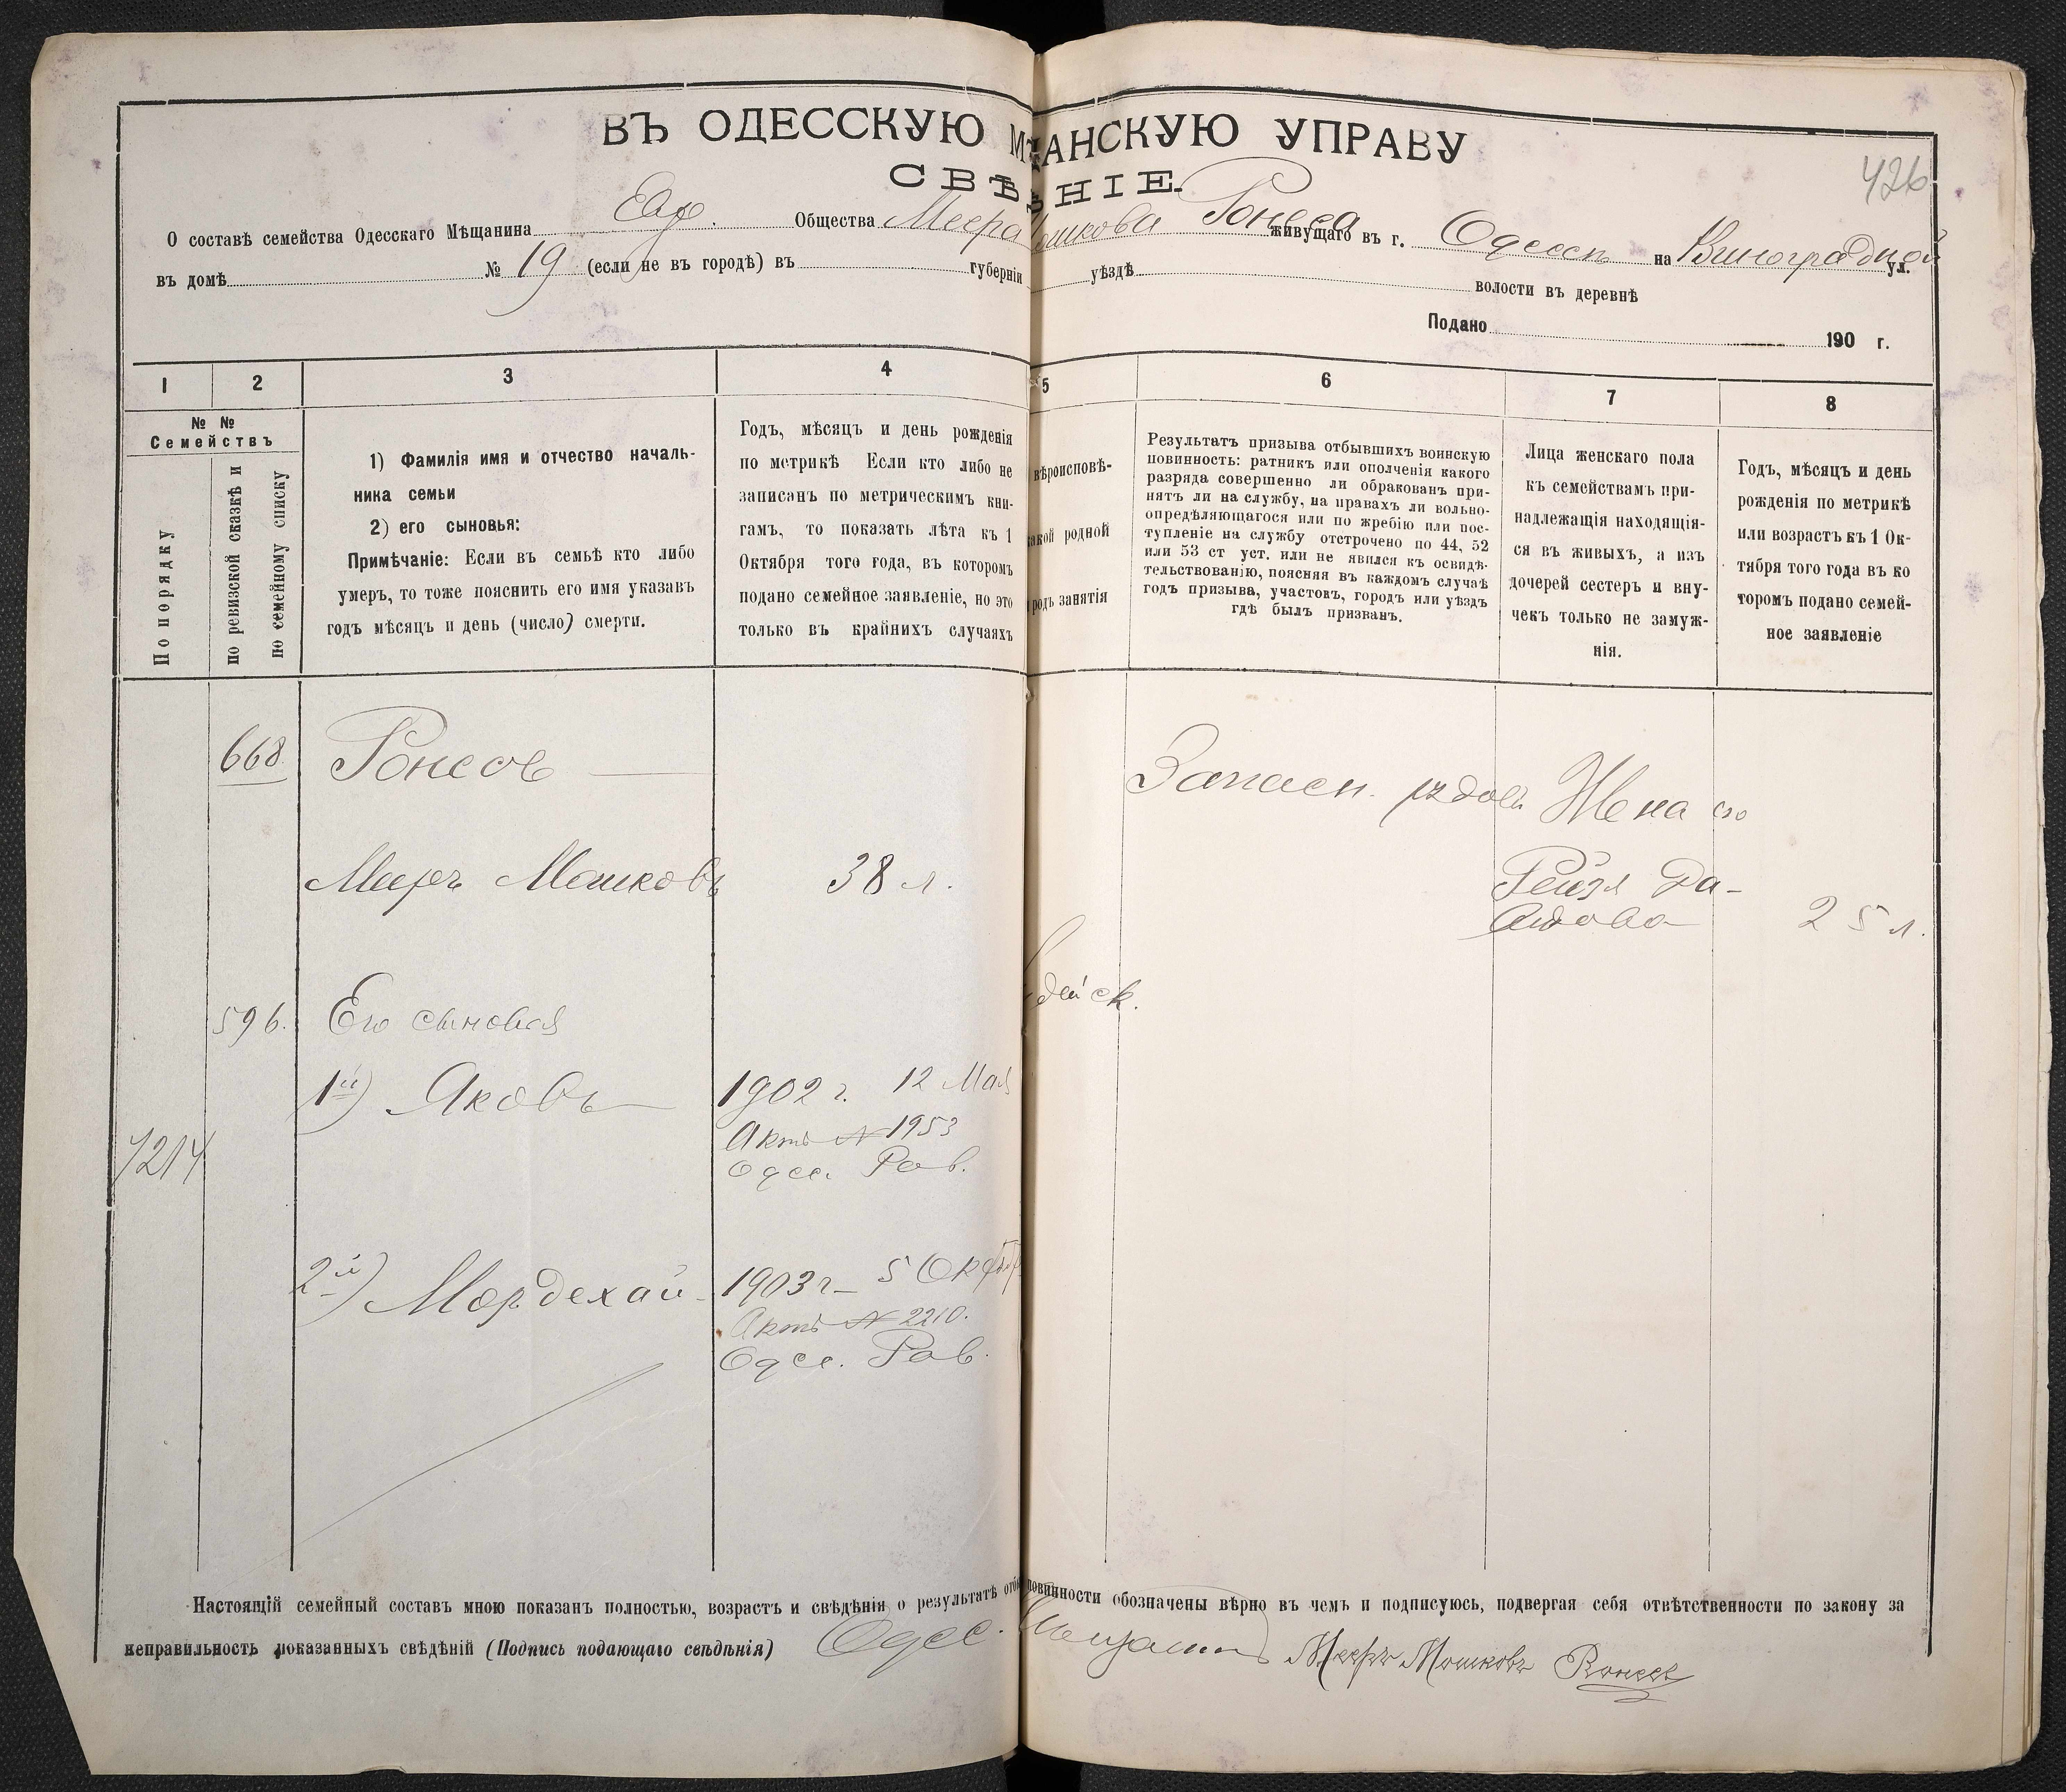 ВЪ ОДЕССКУЮ МѢЩАНСКУЮ УПРАВУ
СВѢДѢНІЕ
426
О составѣ семейства Одесскаго Мѣщанина Евр. Общества Меера Мошкова Ронеса живущаго въ г. Одессѣ на Виноградной ул.
въ домѣ № 19 (если не въ городѣ) въ губерніи уѣздѣ волости въ деревнѣ
Подано 190 г.
1 2 3 4 5 6 7 8
№ №
Семействъ
По порядку
по ревизской сказкѣ и
по семейному списку
1) Фамилія имя и отчество началь-
ника семьи
2) его сыновья:
Примѣчаніе: Если въ семьѣ кто либо
умеръ, то тоже пояснить его имя указавъ
годъ мѣсяцъ и день (число) смерти.
Годъ, мѣсяцъ и день рожденія
по метрикѣ Если кто либо не
записанъ по метрическимъ кни-
гамъ, то показать лѣта къ 1
Октября того года, въ которомъ
подано семейное заявленіе, но это
только въ крайнихъ случаяхъ
вѣроисповѣ-
какой родной
родъ занятія
Результатъ призыва отбывшихъ воинскую
повинность: ратникъ или ополченія какого
разряда совершенно ли обракованъ при-
нятъ ли на службу, на правахъ ли вольно-
опредѣляющагося или по жребію или пос-
тупленіе на службу отстрочено по 44, 52
или 53 ст уст. или не явился къ освидѣ-
тельствованію, поясняя въ каждомъ случаѣ
годъ призыва, участокъ, городъ или уѣздъ
гдѣ былъ призванъ.
Лица женскаго пола
къ семействамъ при-
надлежащія находящія-
ся въ живыхъ, а изъ
дочерей сестеръ и вну-
чекъ только не замуж-
нія.
Годъ, мѣсяцъ и день
рожденія по метрикѣ
или возрастъ къ 1 Ок-
тября того года въ ко
торомъ подано семей-
ное заявленіе
668. Ронесов
Запасн. рядовъ Жена его
Мееръ Мошковъ 38 л.
Рейзя Да-
видова 25 л.
дейск.
596. Его сыновья
1й) Яковъ 1902 г. 12 Мая
Актъ № 1953
Одес. Рав.
7214
2й) Мордехай 1903 г. 5 Октяб
Актъ № 2210.
Одес. Рав.
Настоящій семейный составъ мною показанъ полностью, возрастъ и свѣдѣнія о результатѣ отб повинности обозначены вѣрно въ чемъ и подписуюсь, подвергая себя отвѣтственности по закону за
неправильность показанныхъ свѣдѣній (Подпись подающаго свѣдѣнія) Одес. Мещанинъ Мееръ Мошковъ Ронесъ